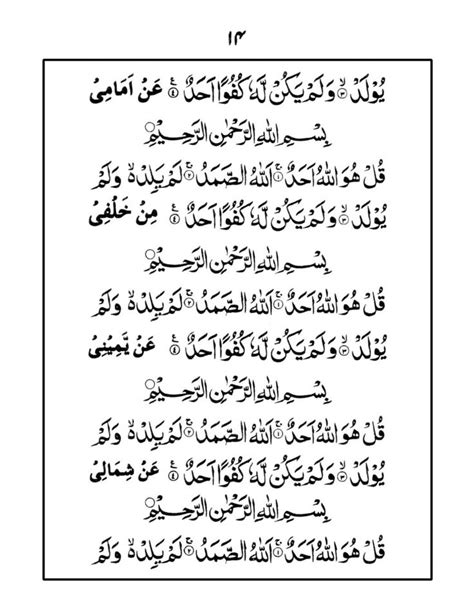 ۱۴
يُوْلَدْ ۙ﴿۳﴾ وَلَمْ يَكُنْ لَّهٗ كُفُوًا اَحَدٌ ۧ﴿۴﴾ عَنْ اَمَامِىْ
بِسْمِ اللهِ الرَّحْمٰنِ الرَّحِيْمِ ۝
قُلْ هُوَ اللهُ اَحَدٌ ۚ﴿۱﴾ اَللهُ الصَّمَدُ ۚ﴿۲﴾ لَمْ يَلِدْ ۙ وَلَمْ
يُوْلَدْ ۙ﴿۳﴾ وَلَمْ يَكُنْ لَّهٗ كُفُوًا اَحَدٌ ۧ﴿۴﴾ مِنْ خَلْفِىْ
بِسْمِ اللهِ الرَّحْمٰنِ الرَّحِيْمِ ۝
قُلْ هُوَ اللهُ اَحَدٌ ۚ﴿۱﴾ اَللهُ الصَّمَدُ ۚ﴿۲﴾ لَمْ يَلِدْ ۙ وَلَمْ
يُوْلَدْ ۙ﴿۳﴾ وَلَمْ يَكُنْ لَّهٗ كُفُوًا اَحَدٌ ۧ﴿۴﴾ عَنْ يَّمِيْنِىْ
بِسْمِ اللهِ الرَّحْمٰنِ الرَّحِيْمِ ۝
قُلْ هُوَ اللهُ اَحَدٌ ۚ﴿۱﴾ اَللهُ الصَّمَدُ ۚ﴿۲﴾ لَمْ يَلِدْ ۙ وَلَمْ
يُوْلَدْ ۙ﴿۳﴾ وَلَمْ يَكُنْ لَّهٗ كُفُوًا اَحَدٌ ۧ﴿۴﴾ عَنْ شِمَالِىْ
بِسْمِ اللهِ الرَّحْمٰنِ الرَّحِيْمِ ۝
قُلْ هُوَ اللهُ اَحَدٌ ۚ﴿۱﴾ اَللهُ الصَّمَدُ ۚ﴿۲﴾ لَمْ يَلِدْ ۙ وَلَمْ